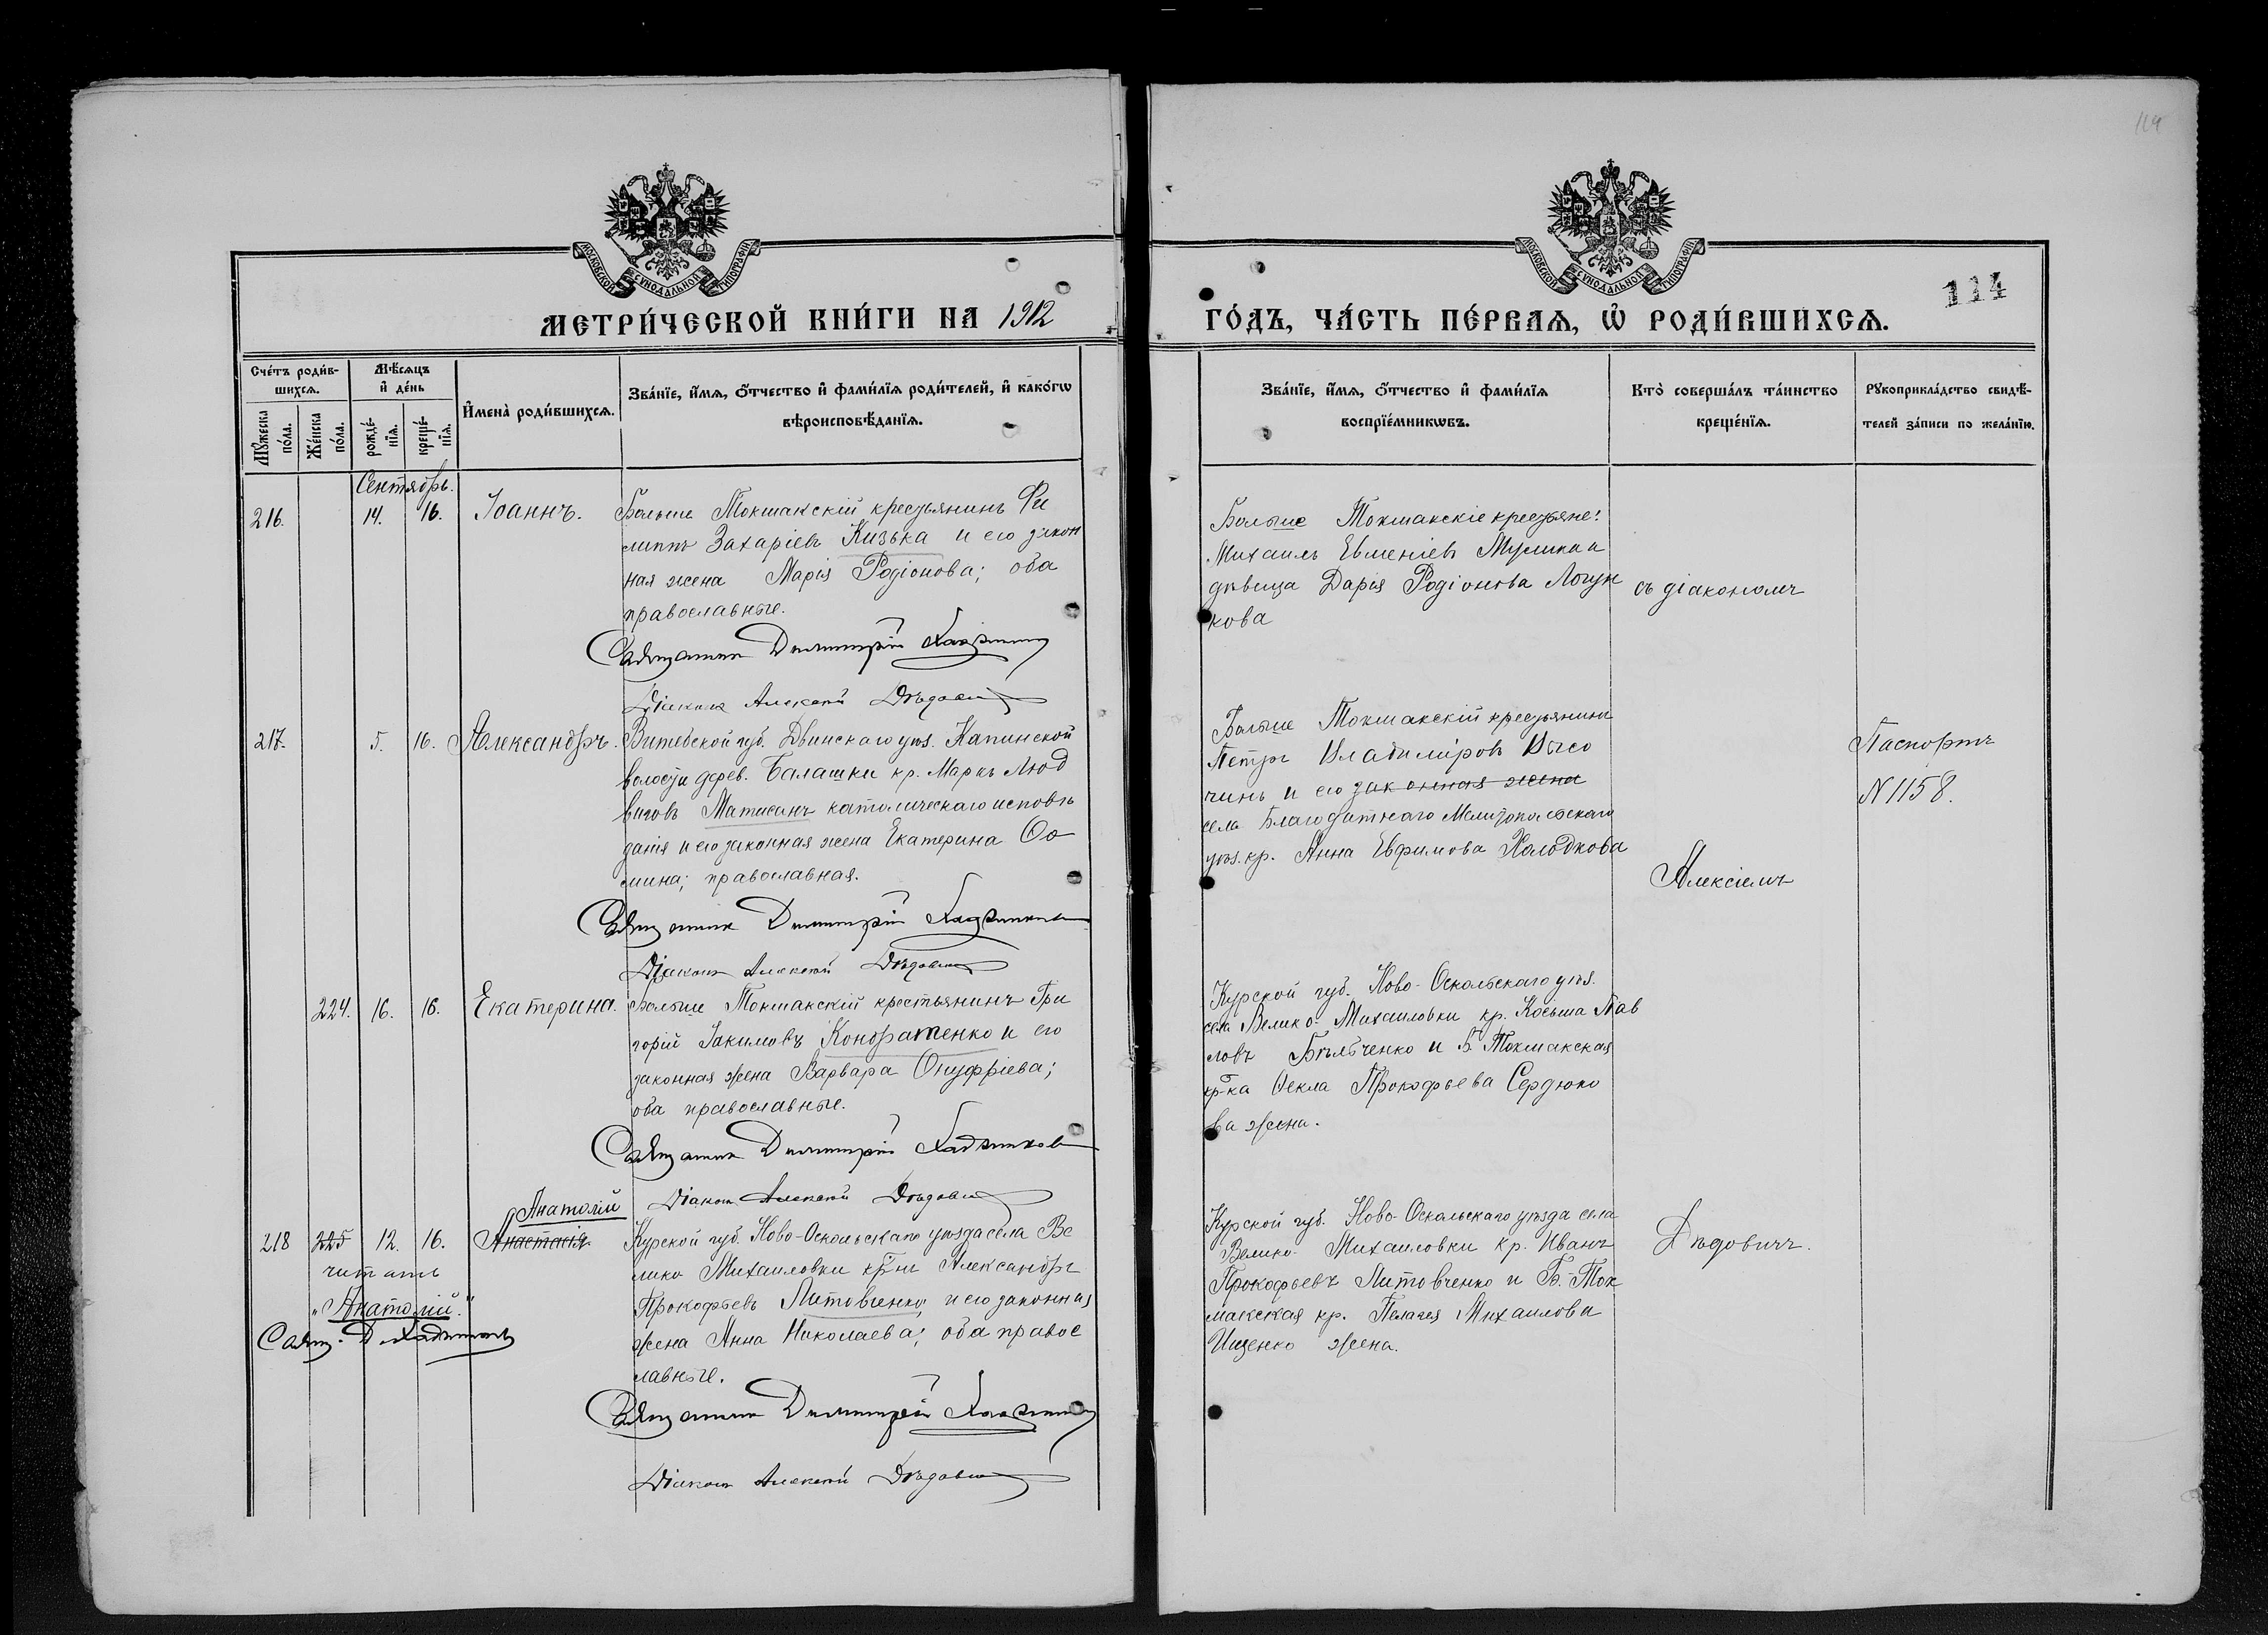 114
МОСКОВСКОЙ СУНОДАЛЬНОЙ ТИПОГРАФІИ
МОСКОВСКОЙ СУНОДАЛЬНОЙ ТИПОГРАФІИ
114
МЕТРИ́ЧЕСКОЙ КНИ́ГИ НА 1912
ГО́ДЪ, ЧА́СТЬ ПЕ́РВАѦ, Ѡ҆ РОДИ́ВШИХСѦ.
Сче́тъ роди́в-
шихсѧ.
Мꙋ́жеска
по́ла.
Же́нска
по́ла.
Мѣ́сѧцъ
и҆ де́нь
рожде́-
нїѧ.
креще́-
нїѧ.
И҆мена̀ роди́вшихсѧ.
Зва́нїе, и҆́мѧ, ѻ҆́тчество и҆ фами́лїѧ роди́телей, и҆ како́гѡ
вѣроисповѣ́данїѧ.
Зва́нїе, и҆́мѧ, ѻ҆́тчество и҆ фами́лїѧ
воспрїе́мникѡвъ.
Кто̀ соверша́лъ та́инство
креще́нїѧ.
Рꙋкоприкла́дство свидѣ́-
телей за́писи по жела́нїю.
Сентябрь.
216.
14.
16.
Іоаннъ.
Больше Токмакскій крестьянинъ Фи
липпъ Захаріевъ Кизька и его закон
ная жена Марія Родіонова; оба
православные.
Священникъ Димитрій
Діаконъ Алексѣй Дѣдовичъ
Больше Токмакскіе крестьяне:
Михаилъ Евменіевъ и
дѣвица Дарія Родіонова Логун
кова
съ діакономъ
217.
5.
16.
Александръ.
Витебской губ. Двинскаго уѣз. Капинской
волости дерев. Балашки кр. Маркъ Люд
виговъ Матисанъ католическаго исповѣ
данія и его законная жена Екатерина Ѳо
мина; православная.
Священникъ Димитрій
Діаконъ Алексѣй Дѣдовичъ
Больше Токмакскій крестьянинъ
Петръ Владиміровъ Высо
чинъ и его законная жена
села Благодатнаго Мелитопольскаго
уѣз. кр. Анна Евфимова Холодкова
Алексіемъ
Паспортъ
N 1158.
224.
16.
16.
Екатерина.
Больше Токмакскій крестьянинъ Гри
горій Іакимовъ Кондратенко и его
законная жена Варвара Онуфріева;
оба православные.
Священникъ Димитрій
Діаконъ Алексѣй Дѣдовичъ
Курской губ. Ново-Оскольскаго уѣз.
села Велико-Михаиловки кр. Косьма Пав
ловъ и Б. Токмакская
кр-ка Ѳекла Прокофьева Сердюко
ва жена.
Анатолій
218
225
12.
16.
Анастасія.
читать
"Анатолій."
Свящ. Д.
Курской губ. Ново-Оскольскаго уѣзда села Ве
лико Михаиловки кр-нъ Александръ
Прокофьевъ Литовченко и его законная
жена Анна Николаева; оба правос
лавные.
Священникъ Димитрій
Діаконъ Алексѣй Дѣдовичъ
Курской губ. Ново-Оскольскаго уѣзда села
Велико-Михаиловки кр. Иванъ
Прокофьевъ Литовченко и Б.-Ток
макская кр. Пелагея Михаилова
Ищенко жена.
Дѣдовичъ.